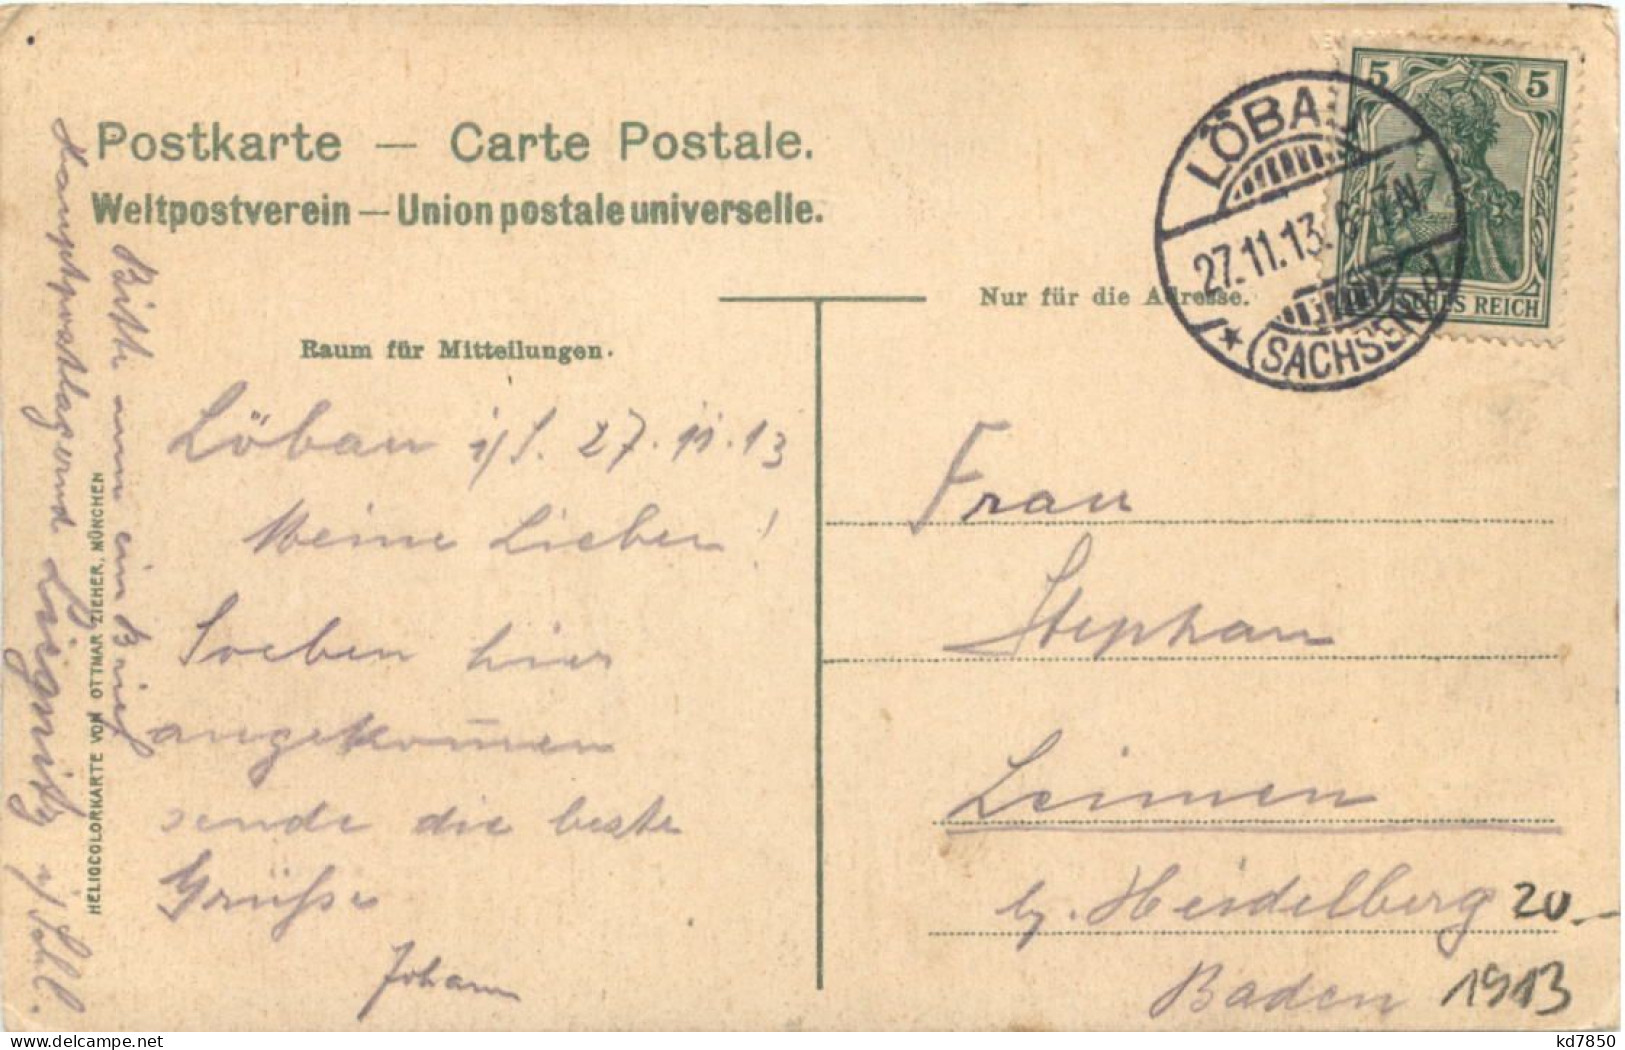 Postkarte — Carte Postale.
Weltpostverein — Union postale universelle.
Raum für Mitteilungen.
Nur für die Adresse.
LÖBAU
27.11.13. 6-7N.
* (SACHSEN) d
5 5
DEUTSCHES REICH
Löbau i/S. 27.11.13
Meine Lieben!
Soeben hier
angekom̄en
sende die beste
Grüße
Johann
Bitte um ein Brief
Hauptpostlagernd Liegnitz i/Schl.
HELIOCOLORKARTE VON OTTMAR ZIEHER, MÜNCHEN
Frau
Stephan
Leimen
b. Heidelberg
Baden
20.-
1913
kd7850